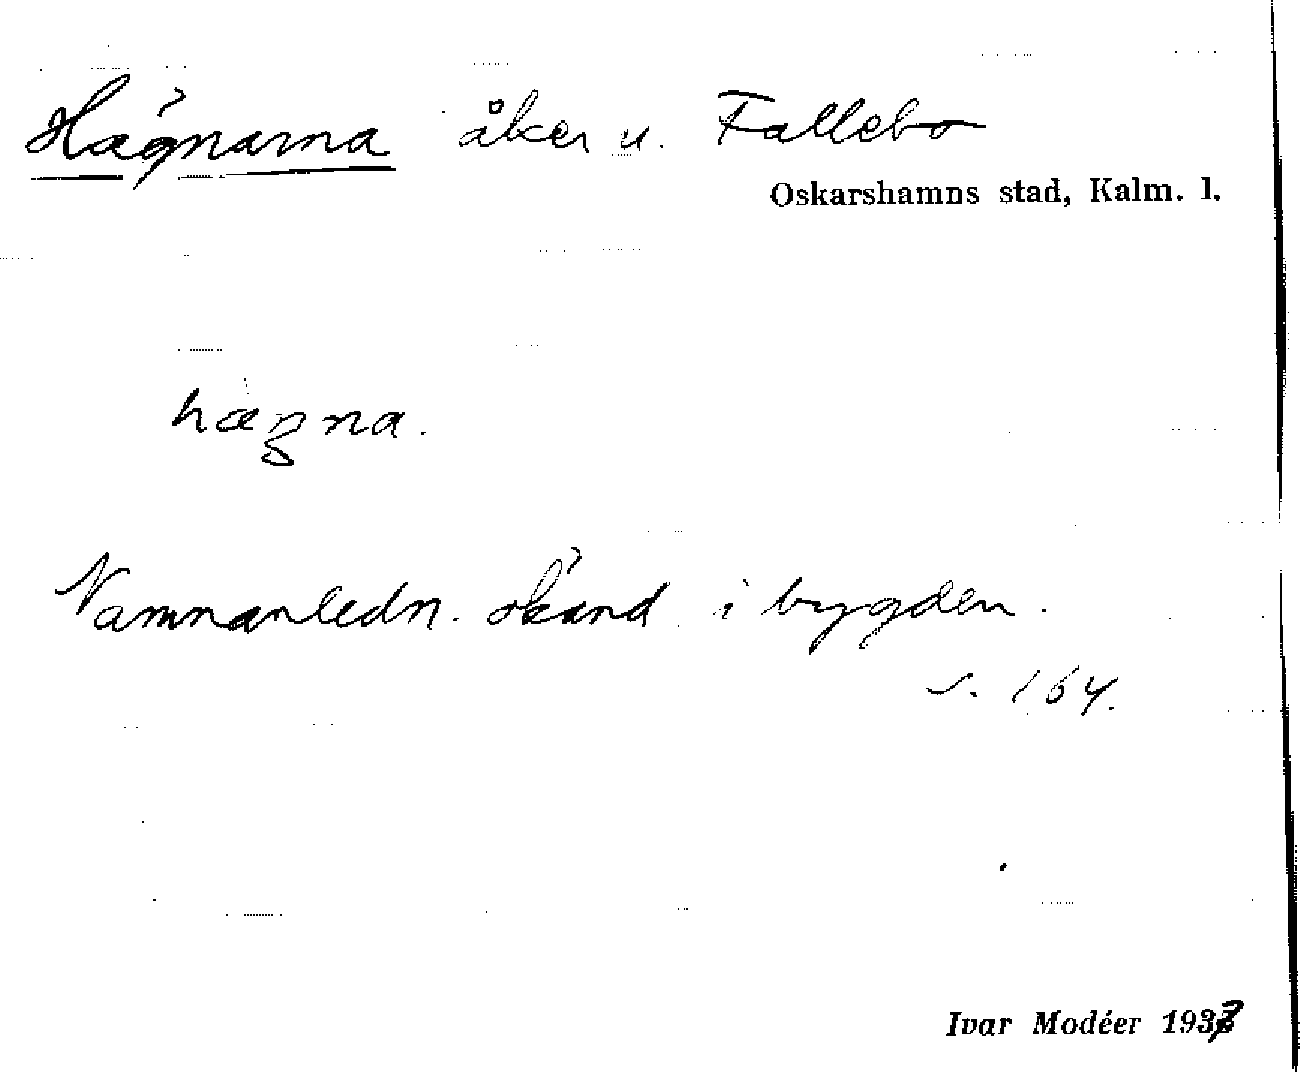 Hägnarna åker u. Fallebo
Oskarshamns stad, Kalm. l.
hægna.
Namnanledn. okänd i bygden.
s. 164.
Ivar Modéer 1937